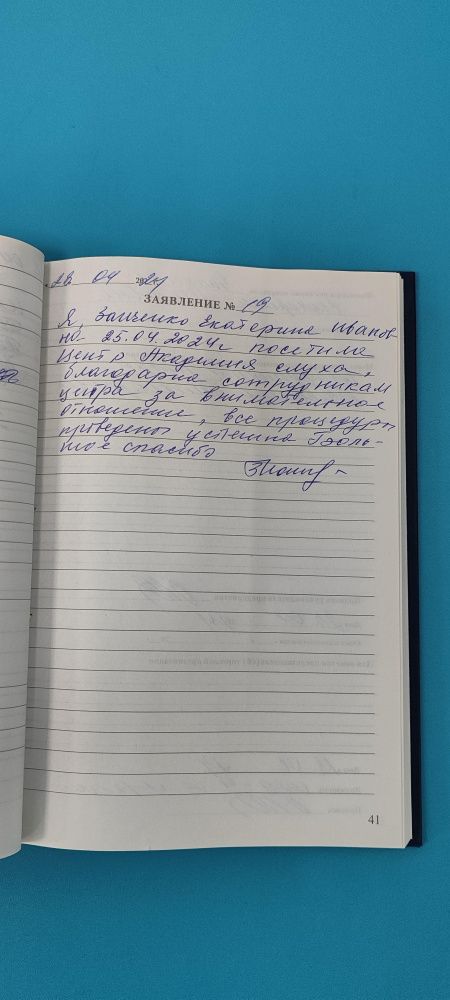 28 04 2024
ЗАЯВЛЕНИЕ № 19
Я, Зайченко Екатерина Иванов-
на 25.04.2024г посетила
Центр Академия слуха,
благодарна сотрудникам
центра за внимательное
отношение, все процедуры
проведены успешна
шое спасибо
41